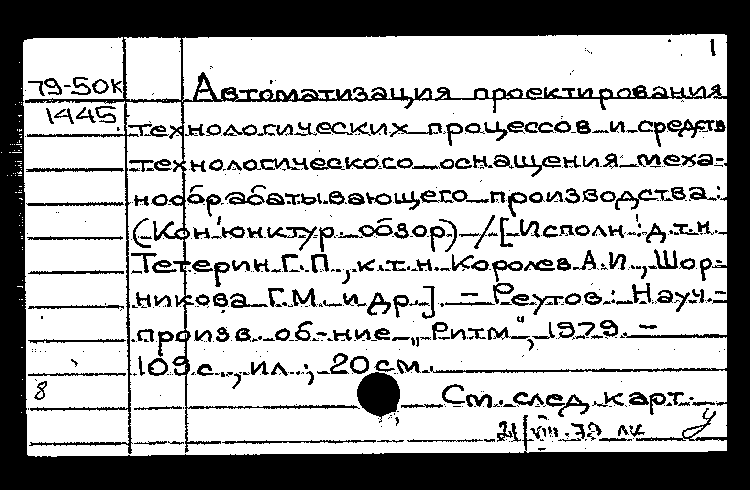 1
79-50к Автоматизация проектирования
1445 технологических процессов и средств
технологического оснащения меха-
нообрабатывающего производства:
(Кон'юнктур. обзор) / [Исполн.: д.т.н.
Тетерин Г.П., к.т.н. Королев А.И., Шор-
никова Г.М. и др.]. — Реутов: Науч.-
произв. об-ние „Ритм", 1979. —
109 с., ил.; 20 см.
8 См. след. карт.
21/VIII-79 лк у